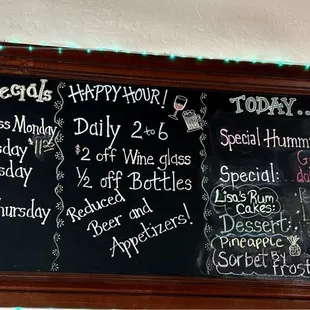 Specials
ss Monday
sday
sday
hursday
HAPPY HOUR!
Daily 2 to 6
$2 off Wine glass
½ off Bottles
Reduced
Beer and
Appetizers!
TODAY...
Special Humm
Special:
Lisa's Rum
Cakes:
Dessert:
Pineapple
Sorbet By
Frost